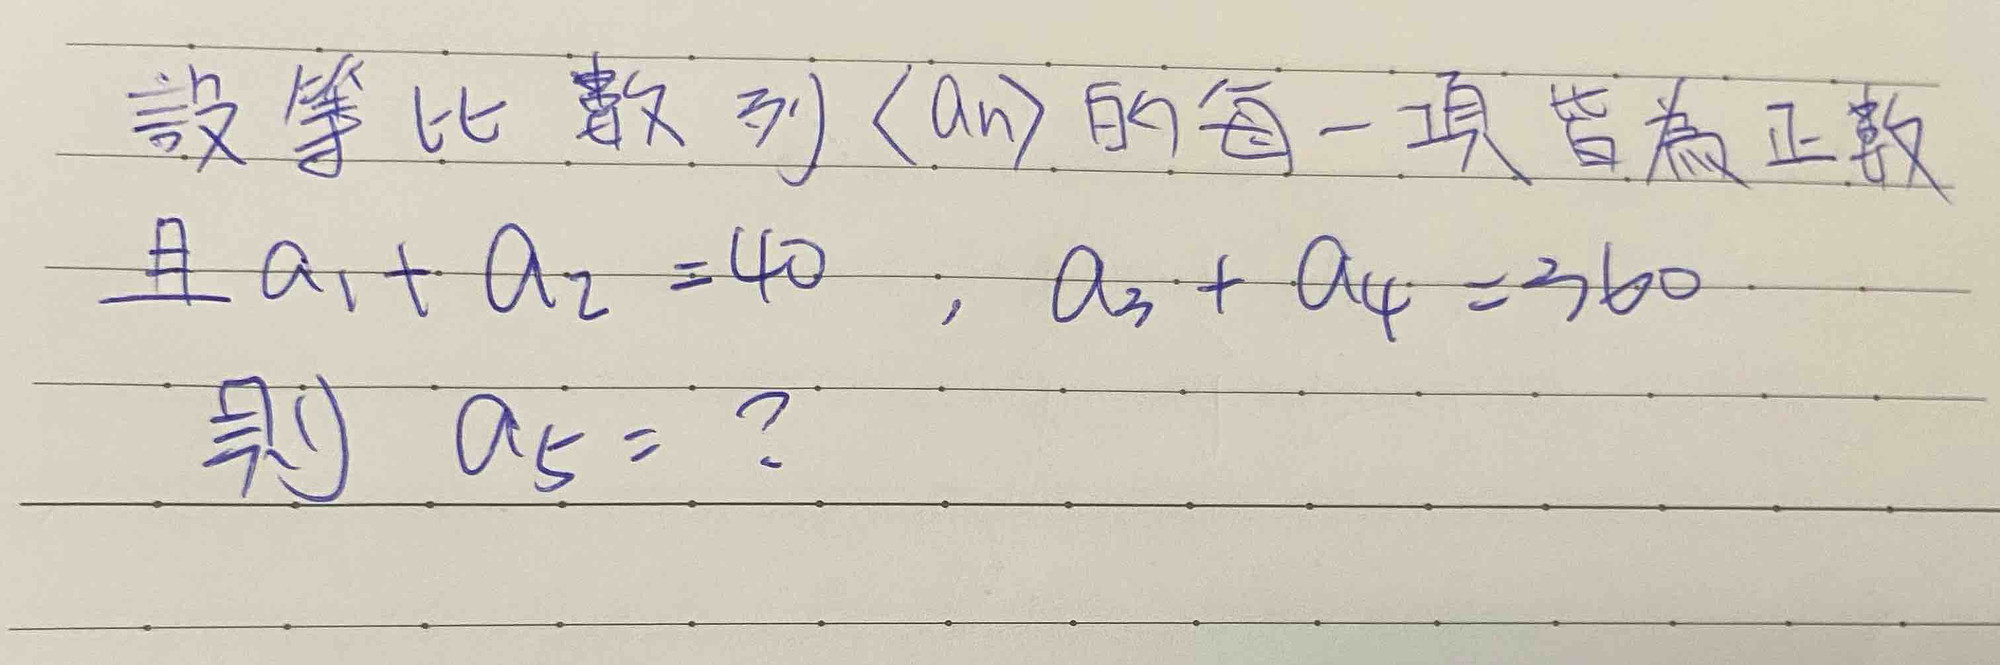 設等比數列〈an〉的每一項皆為正數
且 a₁ + a₂ = 40 , a₃ + a₄ = 360
則 a₅ = ?